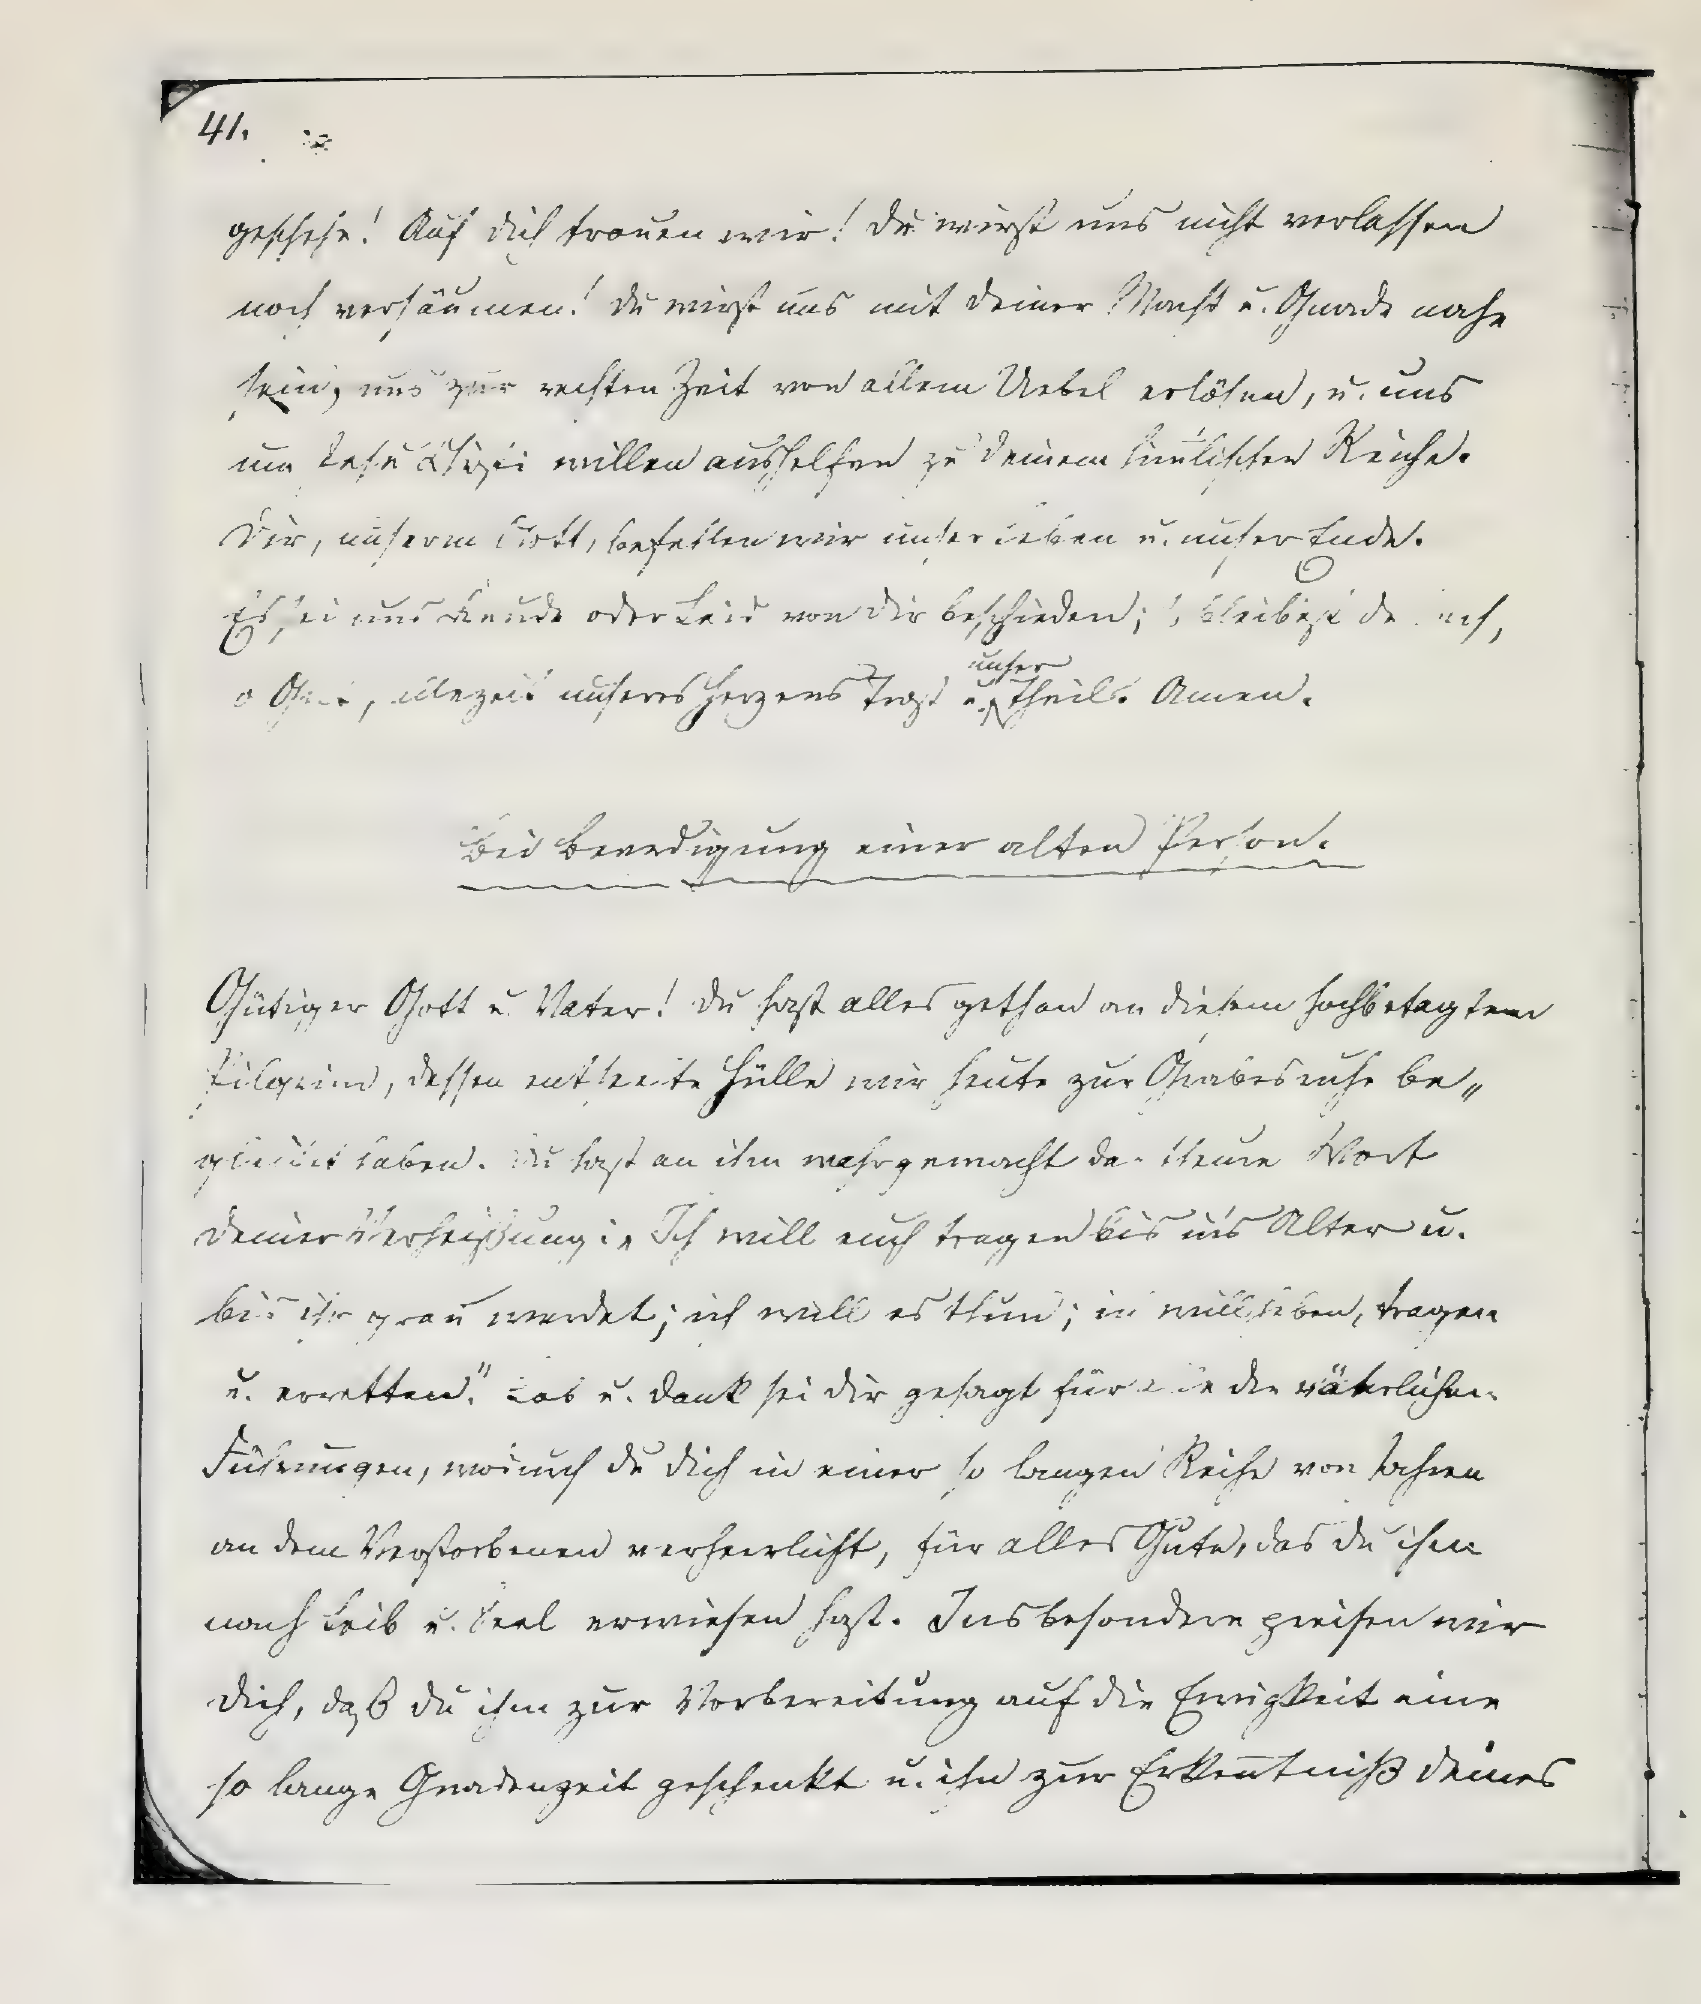 41.
geschehe! Auf dich trauen wir! du wirst uns nicht verlassen
noch versäumen! du wirst uns mit deiner Macht u. Gnade nahe
sein, uns zur rechten Zeit von allem Uebel erlösen, u. uns
um Jesu Christi willen aushelfen zu deinem himlischen Reiche.
Dir, unserm Gott, befehlen wir unser Leben u. unser Ende.
Es sei uns Freude oder Leid von dir beschieden; bleibest
o Gott, allezeit unseres Herzens Trost u. unser Theil. Amen.
Bei Beerdigung einer alten Person.
Gütiger Gott u. Vater! du hast alles gethan an diesem hochbetagten
Pilgrim, dessen entseelte Hülle wir heute zur Grabesruhe be„
gleitet haben. Du hast an ihm wahrgemacht das theure Wort
deiner Verheißung: „Ich will euch tragen bis in's Alter u.
bis ihr grau werdet; ich will es thun; ich will heben, tragen
u. erretten." Lob u. Dank sei dir gesagt für alle die väterlichen
Führungen, wodurch du dich in einer so langen Reihe von Jahren
an dem Verstorbenen verherrlicht, für alles Gute, das du ihm
nach Leib u. Seel erwiesen hast. Insbesondere preisen wir
dich, daß du ihm zur Vorbereitung auf die Ewigkeit eine
so lange Gnadenzeit geschenkt u. ihn zur Erkentniß deines